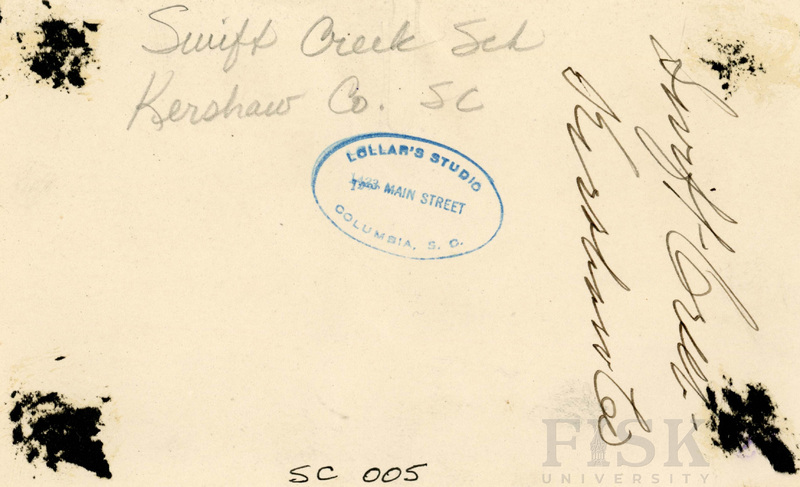 Swift Creek Sch
Kershaw Co. SC
LOLLAR'S STUDIO
MAIN STREET
COLUMBIA, S. C.
Swift Creek
Kershaw Co
SC 005
FISK
UNIVERSITY